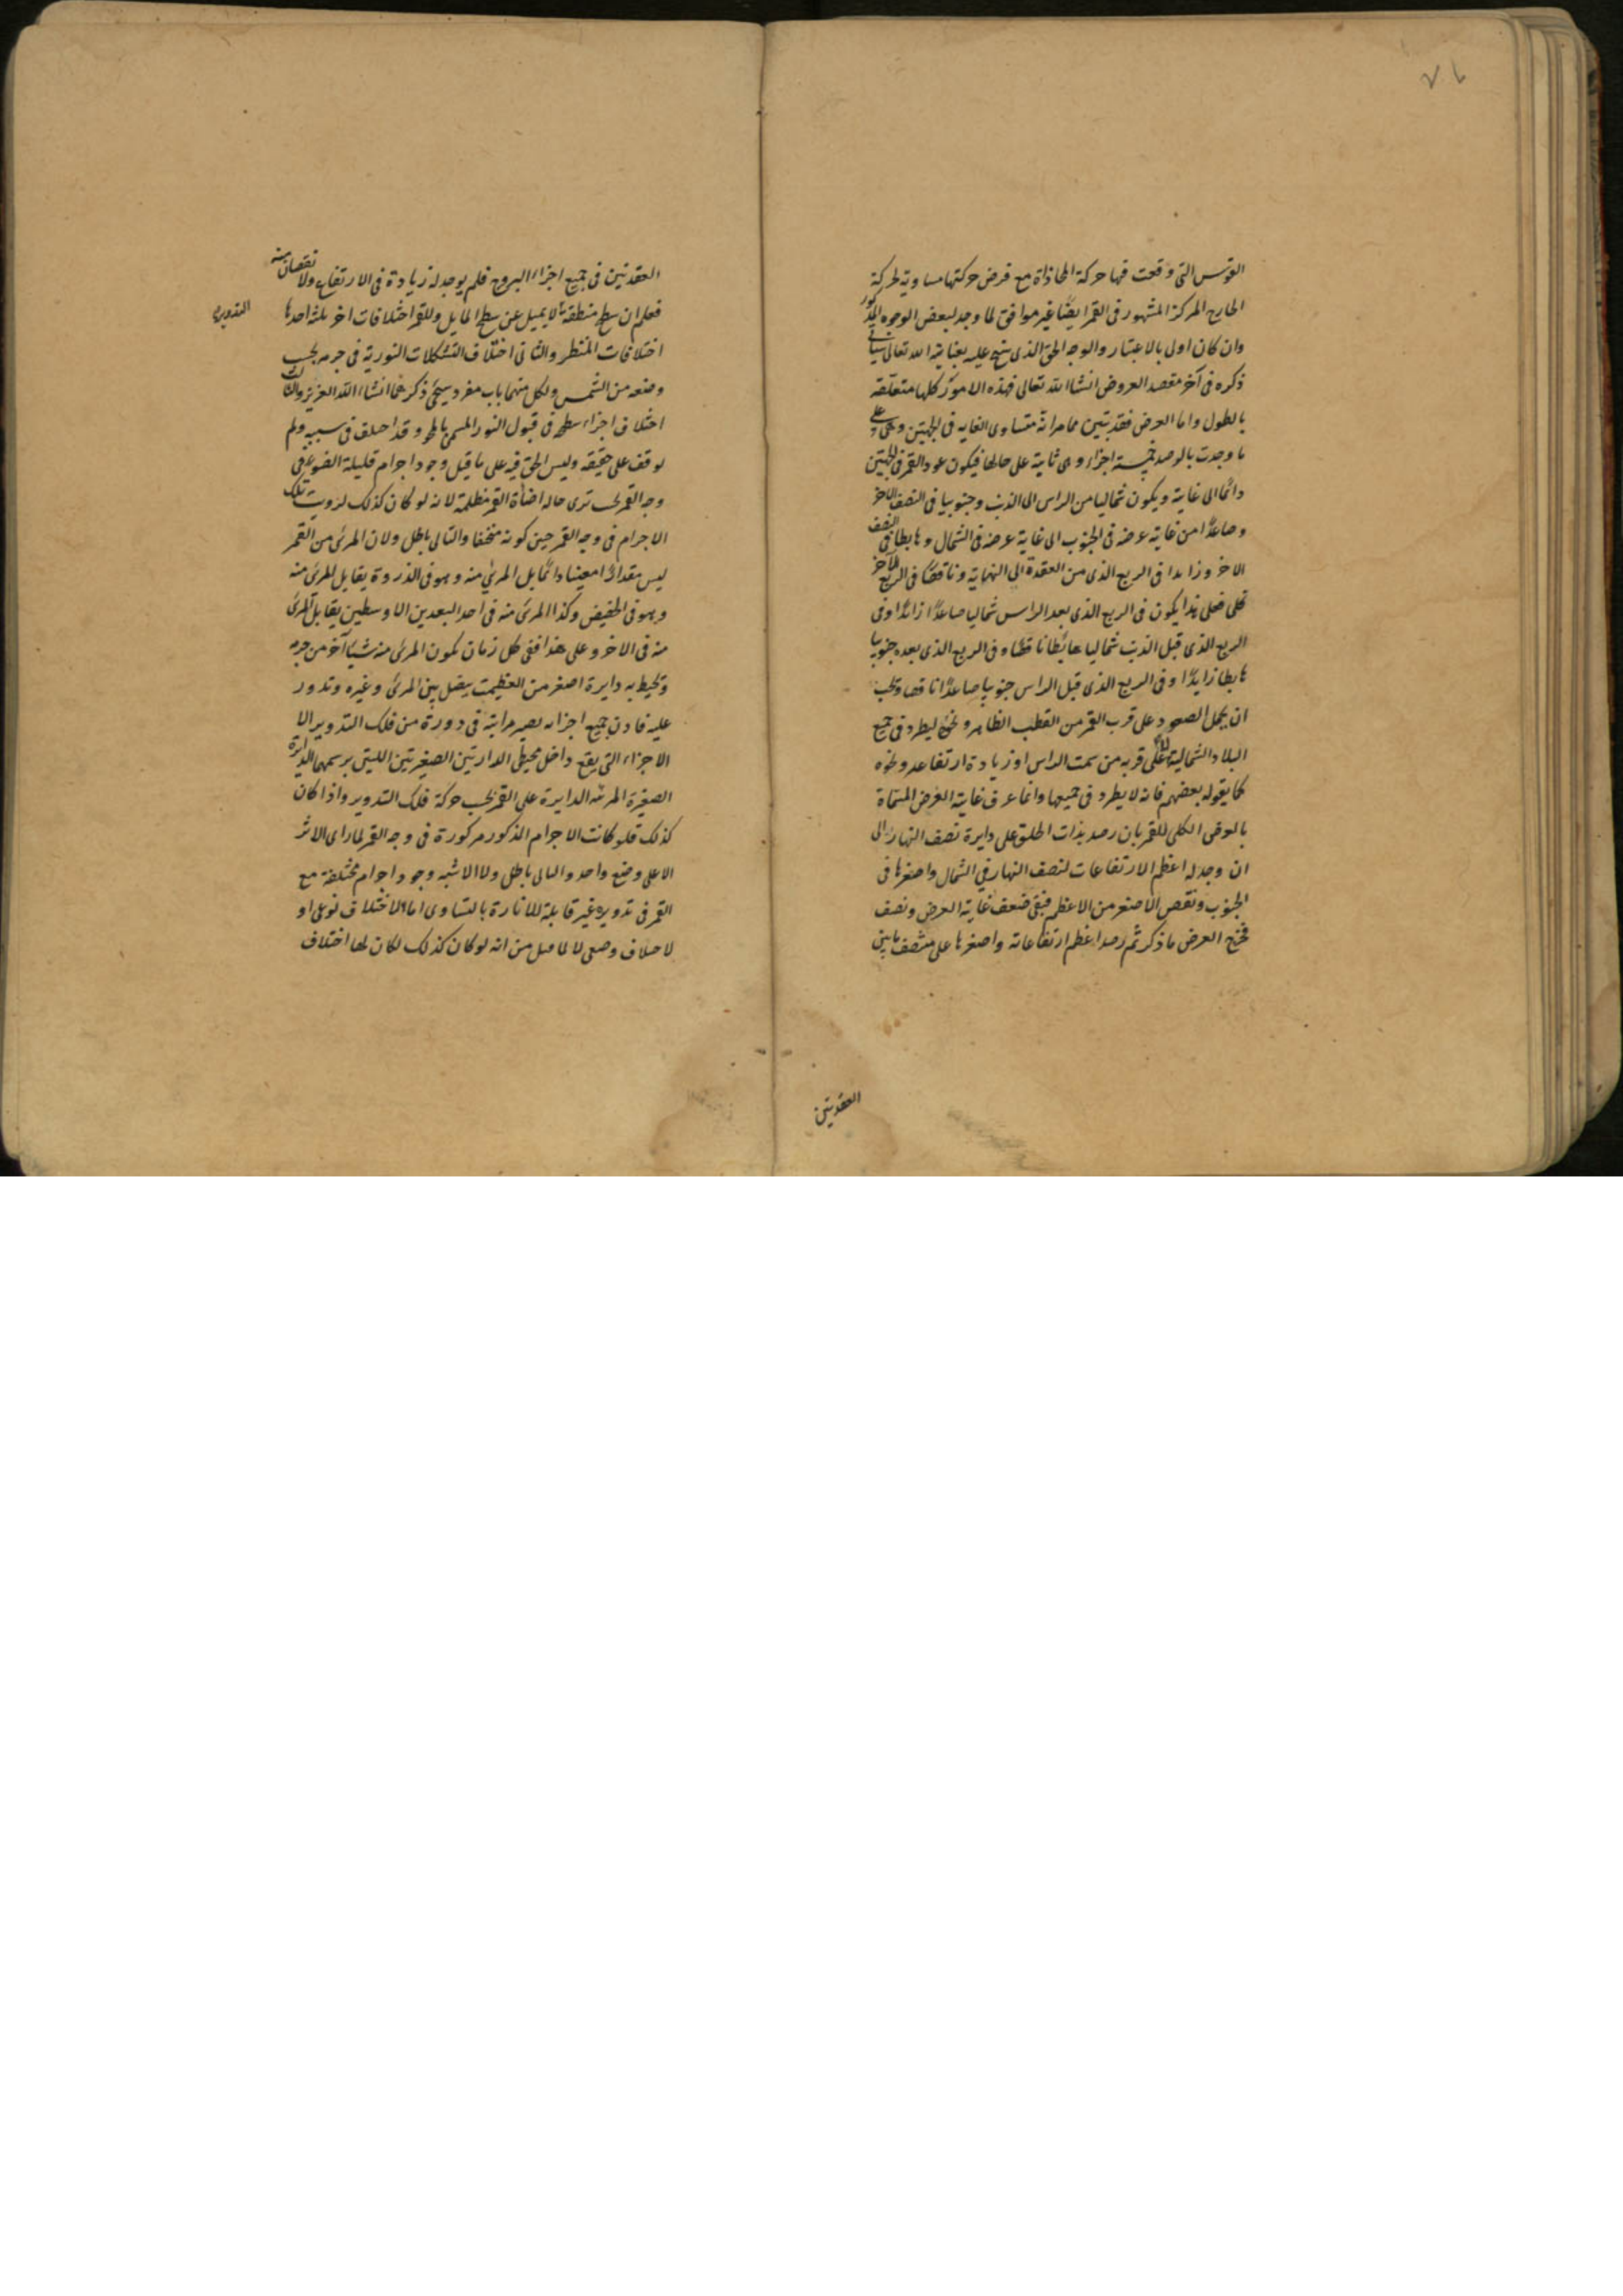 القوس التى وقعت فيها حركة المحاذاة مع فرض حركتها مساوية لحركة
الخارج المركز المشهور فى القمر ايضًا غير موافق لما وجد لبعض الوجوه المذكور
وان كان اولى بالاعتبار والوجه الحق الذى عليه بعناية الله تعالى سياتى
ذكره فى آخر مقصد العروض انشا الله تعالى فهذه الامور كلها متعلقه
بالطول واما العرض فقد تبين مما مر انه متساوى الغايه فى الجهتين وهى على
ما وجدت بالرصد خمسة اجزاء وهى ثابتة على حالها فيكون عود القمر فى الجهتين
دائما الى غاية ويكون شماليا من الراس الى الذنب وجنوبيا فى النصف الاخر
وصاعدًا من غاية عرضه فى الجنوب الى غاية عرضه فى الشمال وهابطا فى النصف
الاخر وزايدا فى الربع الذى من العقدة الى النهاية وناقصًا فى الربع الآخر
فعلى هذا يكون فى الربع الذى بعد الراس شماليا صاعدًا زائدًا وفى
الربع الذى قبل الذنب شماليا هابطا ناقصًا وفى الربع الذى بعده جنوبيا
هابطا زايدًا وفى الربع الذى قبل الراس جنوبيا صاعدًا ناقصا ويجب
ان يحمل الصعود على قرب القمر من القطب الظاهر ونحوه ليطرد فى جميع
البلاد الشمالية لا على قربه من سمت الراس او زيادة ارتفاعه ونحوه
كما يقوله بعضهم فانه لا يطرد فى جميعها وانما عرف غاية العرض المسماة
بالعرض الكلى للقمر بان رصد بذات الحلق على دايرة نصف النهار الى
ان وجد له اعظم الارتفاعات لنصف النهار فى الشمال واصغرها فى
الجنوب ونقص الاصغر من الاعظم فبقى ضعف غاية العرض ونصف
فخرج العرض ما ذكر ثم رصد اعظم ارتفاعاته واصغرها على منتصف ما بين
العقدتين
العقدتين فى جميع اجزاء البروج فلم يوجد له زيادة فى الارتفاع ولا نقصان منه
فعلم ان سطح منطقة لا يميل عن سطح المايل وللقمر اختلافات اخر ثلثه احدها
التدوير
اختلافات المنظر والثانى اختلاف التشكلات النورية فى جرمه بحسب
وضعه من الشمس ولكل منهما باب مفرد سيجئ ذكرهما انشاء الله العزيز والثالث
اختلاف اجزاء سطحه فى قبول النور المسمى بالمحو وقد اختلف فى سببه ولم
يوقف على حقيقته وليس الحق فيه على ما قيل وجود اجرام قليلة الضوء فى
وجه القمر ترى حاله اضاة القمر مظلمة لانه لو كان كذلك لرويت تلك
الاجرام فى وجه القمر حين كونه منخسفا والتالى باطل ولان المرئ من القمر
ليس مقدارًا معينا دائمًا بل المرئ منه وهو فى الذروة يقابل المرئ منه
وهو فى الحضيض وكذا المرئ منه فى احد البعدين الاوسطين يقابل المرئ
منه فى الاخر وعلى هذا ففى كل زمان يكون المرئ منه شيئا آخر من جرمه
وتحيط به دايرة اصغر من العظيمة يفصل بين المرئ وغيره وتدور
عليه فاذن جميع اجزائه يصير مرايته فى دورة من فلك التدوير الا
الاجزاء التى يقع داخل محيطى الدايرتين الصغيرتين اللتين يرسمهما الدايرة
الصغيرة الدايرة على القمر بحسب حركة فلك التدوير واذا كان
كذلك فلو كانت الاجرام المذكور مركوزة فى وجه القمر لما راى الاثر
الا على وضع واحد والتالى باطل ولا الاشبه وجود اجرام مختلفة مع
القمر فى تدويره غير قابلة للانارة بالتساوى اما لاختلاف نوعى او
لاختلاف وضعى لا لما قيل من انه لو كان كذلك لكان لها اختلاف